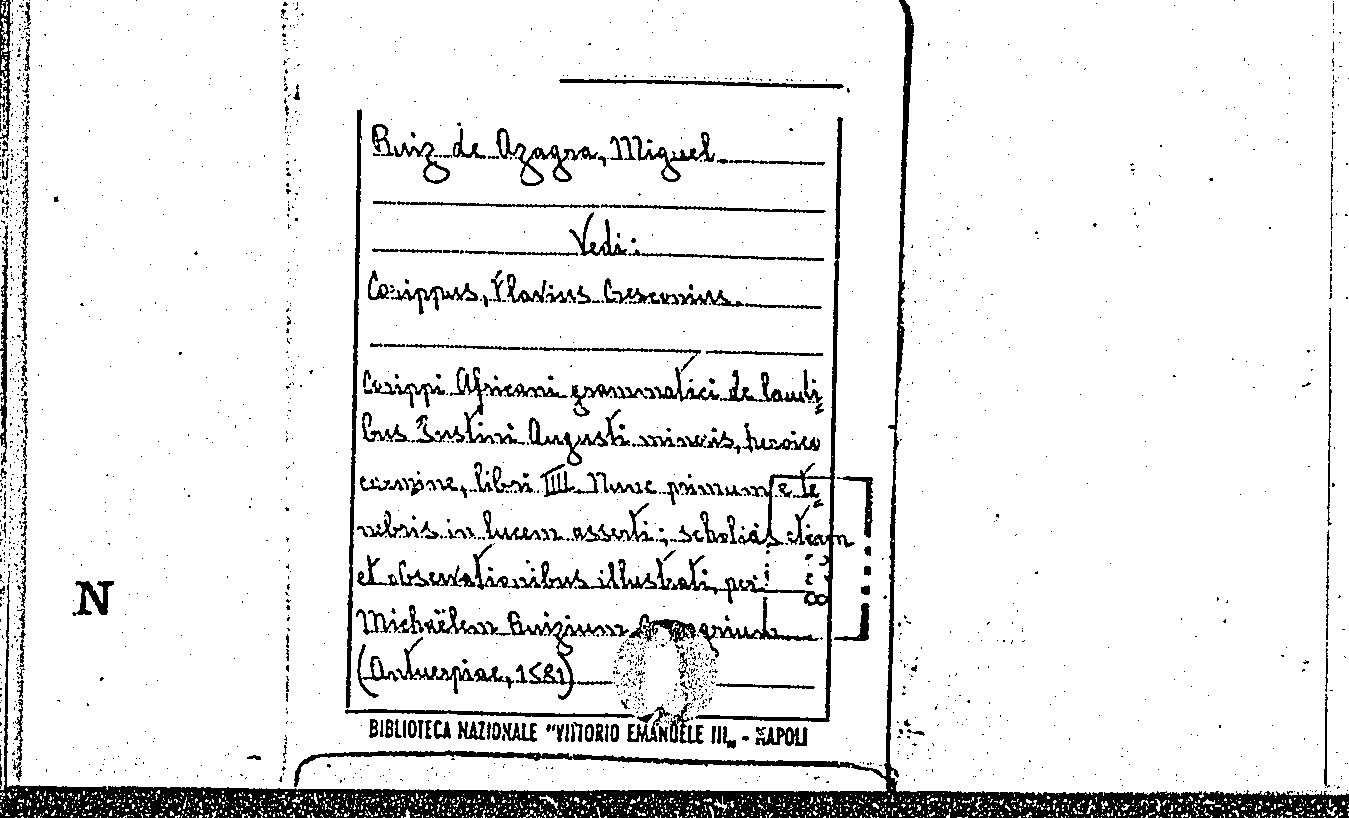 Ruiz de Azagra, Miguel
Vedi:
Corippus, Flavius Cresconius.
Corippi Africani grammatici de laudi=
bus Iustini Augusti minoris, heroico
carmine, libri IIII. Nunc primum e te=
nebris in lucem asserti; scholiis etiam
et observationibus illustrati, per
Michaëlem Ruizium
(Antuerpiae, 1581)
N
BIBLIOTECA NAZIONALE "VITTORIO EMANUELE III„ - NAPOLI